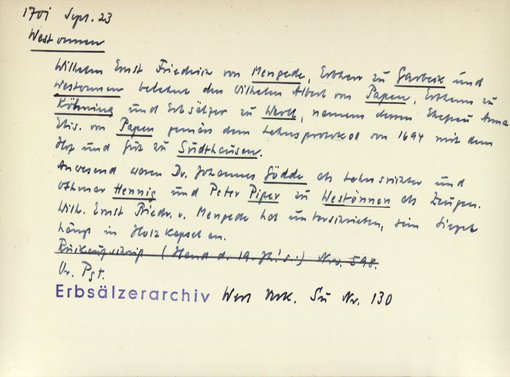 1701 Sept. 23
Westonnen
Wilhelm Ernst Friedrich von Mengede, Erbherr zu Garbeck und
Westonnen belehnt den Wilhelm Albert von Papen, Erbherrn zu
Köhning und Erbsälzer zu Werl, namens dessen Ehefrau Anna
Elis. von Papen gemäß dem Lehnsprotokol von 1694 mit dem
Hof und Gut zu Südthausen.
Anwesend waren Dr. Johannes Gödde als Lehnsrichter und
Othmar Hennig und Peter Piper zu Westönnen als Zeugen.
Wilh. Ernst Friedr. v. Mengede hat unterschrieben, sein Siegel
hängt in Holzkapsel an.
Rückaufschrift (Hand d. 19. Jh's.) Nro. 598.
Or. Pgt.
Erbsälzerarchiv Werl Urk. Nr. 130